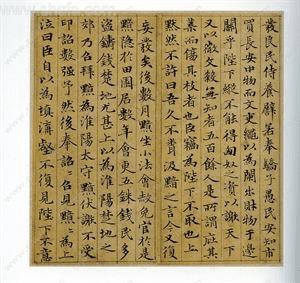 發良民侍養譬若奉驕子愚民安知市
買長安中物而文吏繩以為闌出財物于邊
關乎陛下縱不能得匈奴之資以謝天下
又以微文殺無知者五百餘人是所謂庇其
葉而傷其枝者也臣竊為陛下不取也上
默然不許曰吾久不聞汲黯之言今又復
妄發矣後數月黯坐小法會赦免官於是
黯隱於田園居數年會更五銖錢民多
盜鑄錢楚地尤甚上以為淮陽楚地之
郊乃召拜黯為淮陽太守黯伏謝不受
印詔數強予然後奉詔詔召見黯黯為上
泣曰臣自以為填溝壑不復見陛下不意